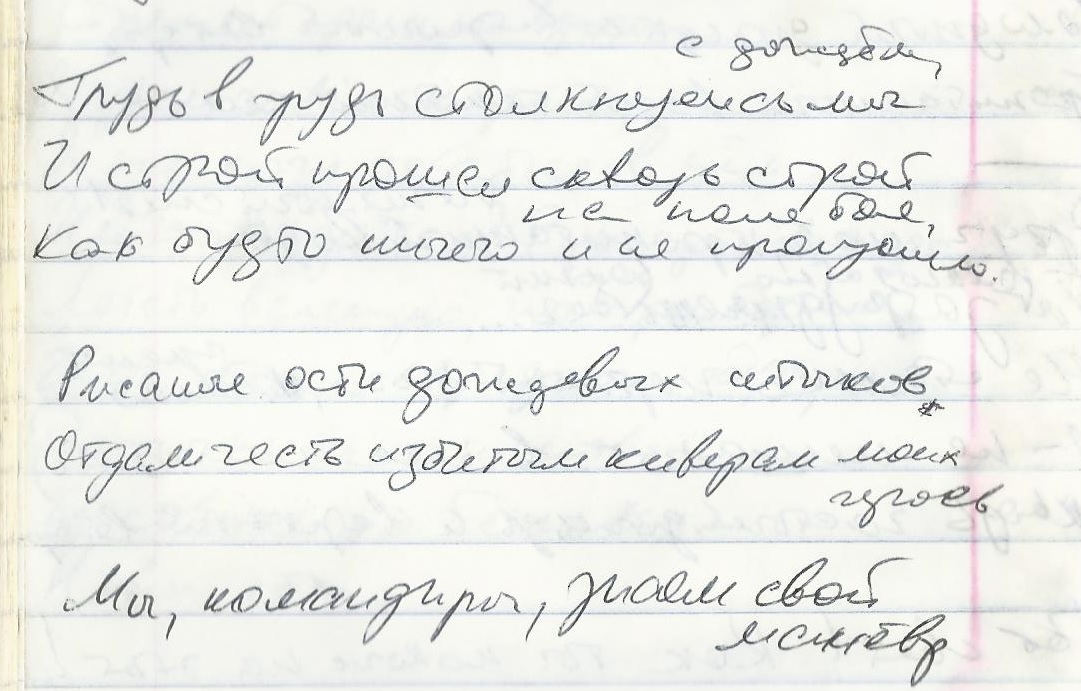 с дождём,
Грудь в грудь столкнулись мы
И строй прошел сквозь строй
на поле боя,
Как будто ничего и не произошло.
ости дождевых штыков
Отдали честь избитым киверам моих
героев
Мы, командиры, знаем свой
манёвр